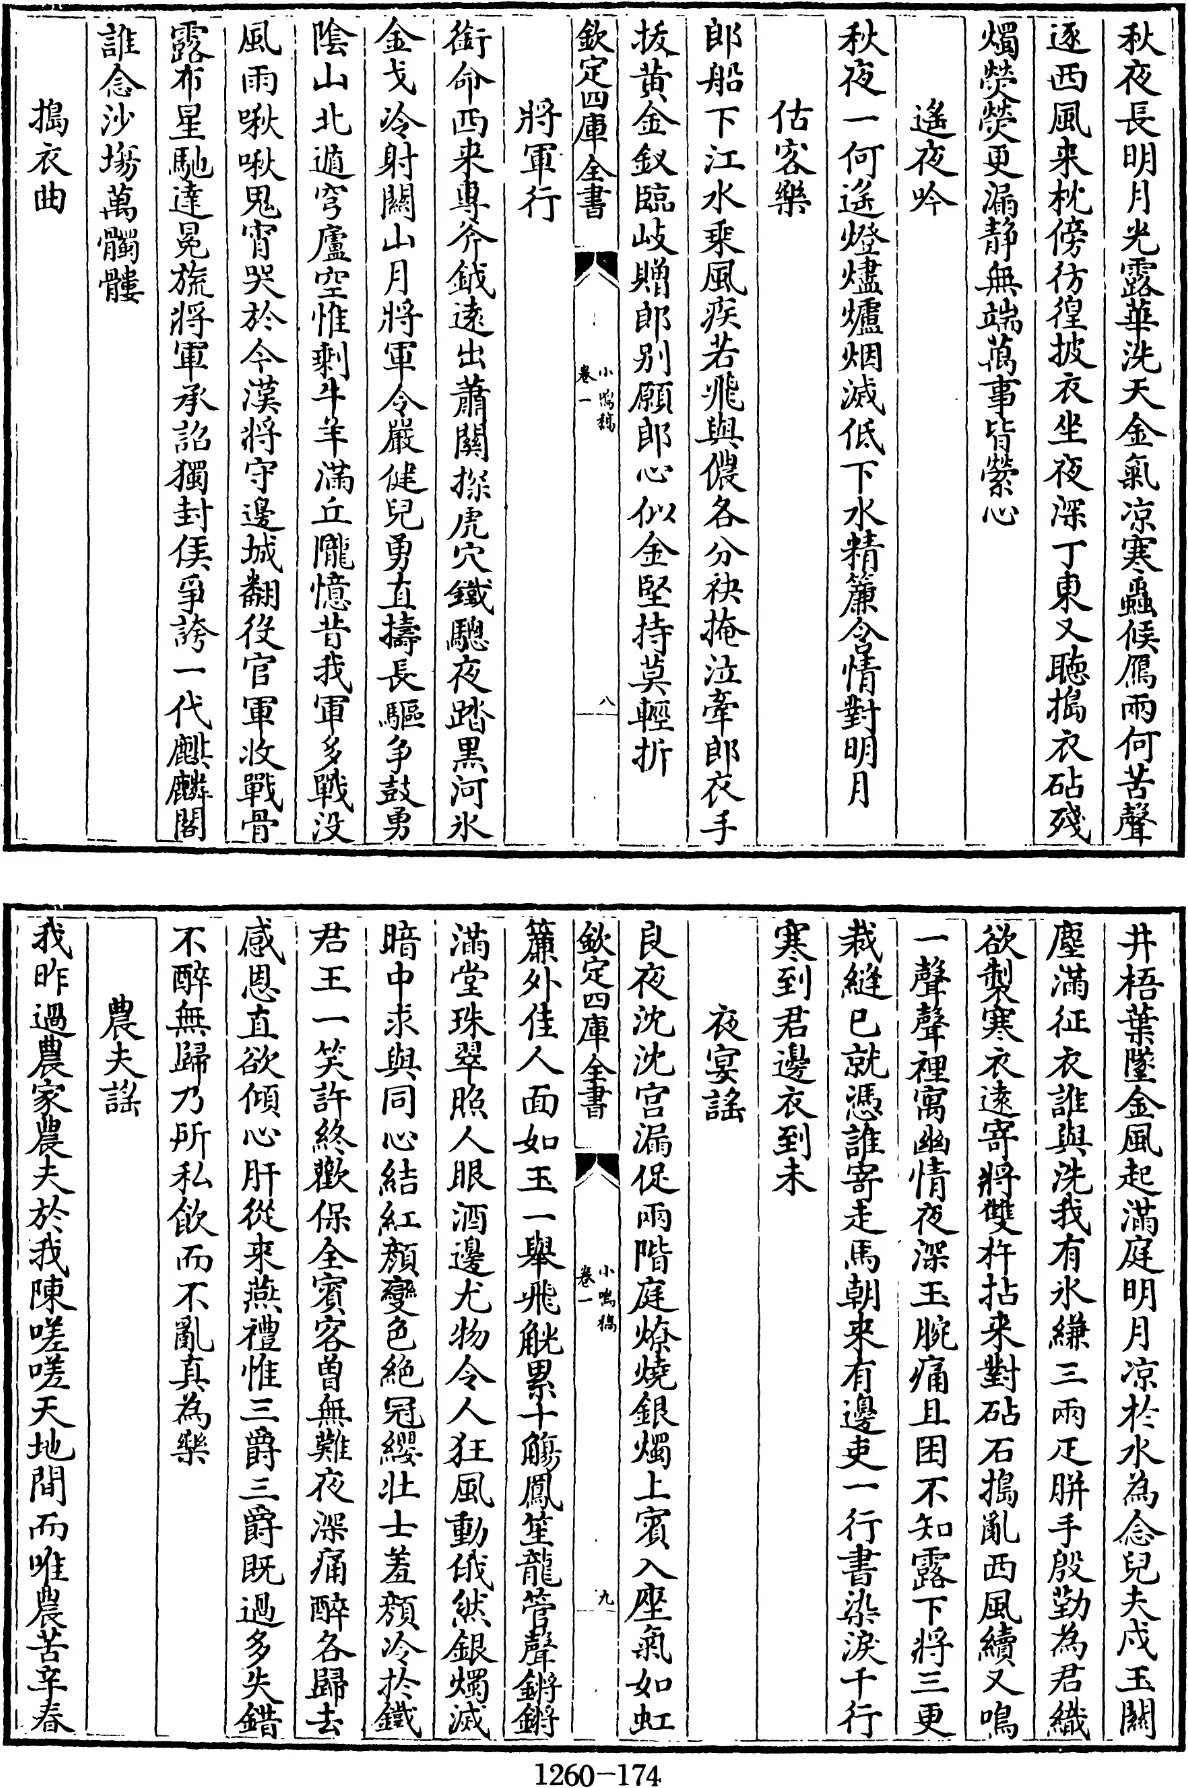 秋夜長明月光露華洗天金氣凉寒螿候鴈兩何苦聲
逐西風来枕傍彷徨披衣坐夜深丁東又聽搗衣砧殘
燭熒熒更漏静無端萬事皆縈心
遙夜吟
秋夜一何遙燈燼爐烟滅低下水精簾含情對明月
估客樂
郎船下江水乘風疾若飛與儂各分袂掩泣牽郎衣手
拔黄金釵臨岐贈郎别願郎心似金堅持莫輕折
欽定四庫全書
小鳴稿
卷一
八
將軍行
銜命西來專斧鉞遠出蕭關探虎穴鐵驄夜踏黒河氷
金戈冷射關山月將軍令嚴健兒勇直擣長驅争鼓勇
陰山北遁穹廬空惟剩牛羊滿丘隴憶昔我軍多戰没
風雨啾啾鬼宵哭於今漢將守邊城翻役官軍收戰骨
露布星馳達冕旒將軍承詔獨封侯爭誇一代麒麟閣
誰念沙塲萬髑髏
搗衣曲
井梧葉墜金風起滿庭明月凉於水為念兒夫戍玉關
塵滿征衣誰與洗我有氷縑三兩疋胼手殷勤為君織
欲製寒衣逺寄將雙杵拈来對砧石搗亂西風續又鳴
一聲聲裡寓幽情夜深玉腕痛且困不知露下將三更
裁縫已就憑誰寄走馬朝來有邊吏一行書染淚千行
寒到君邊衣到未
夜宴謡
良夜沈沈宫漏促兩階庭燎燒銀燭上賓入座氣如虹
欽定四庫全書
小鳴稿
卷一
九
簾外佳人面如玉一舉飛觥累十觴鳳笙龍管聲鏘鏘
滿堂珠翠照人眼酒邊尤物令人狂風動俄然銀燭滅
暗中求與同心結紅顔變色絶冠纓壯士羞顔冷於鐵
君王一笑許終歡保全賓客曾無難夜深痛醉各歸去
感恩直欲傾心肝從來燕禮惟三爵三爵既過多失錯
不醉無歸乃所私飲而不亂真為樂
農夫謡
我昨過農家農夫於我陳嗟嗟天地間而唯農苦辛春
1260-174